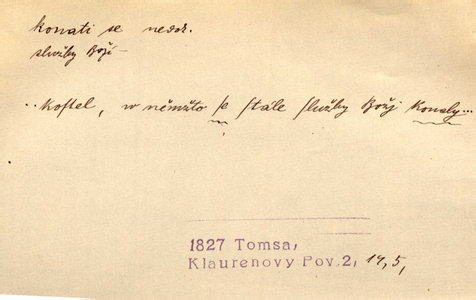 konati se nedok.
služby Boží –
.. Koſtel, w němžto ſe ſtále ſlužby Božj konaly...
1827 Tomsa,
Klaurenovy Pov. 2, 14, 5,